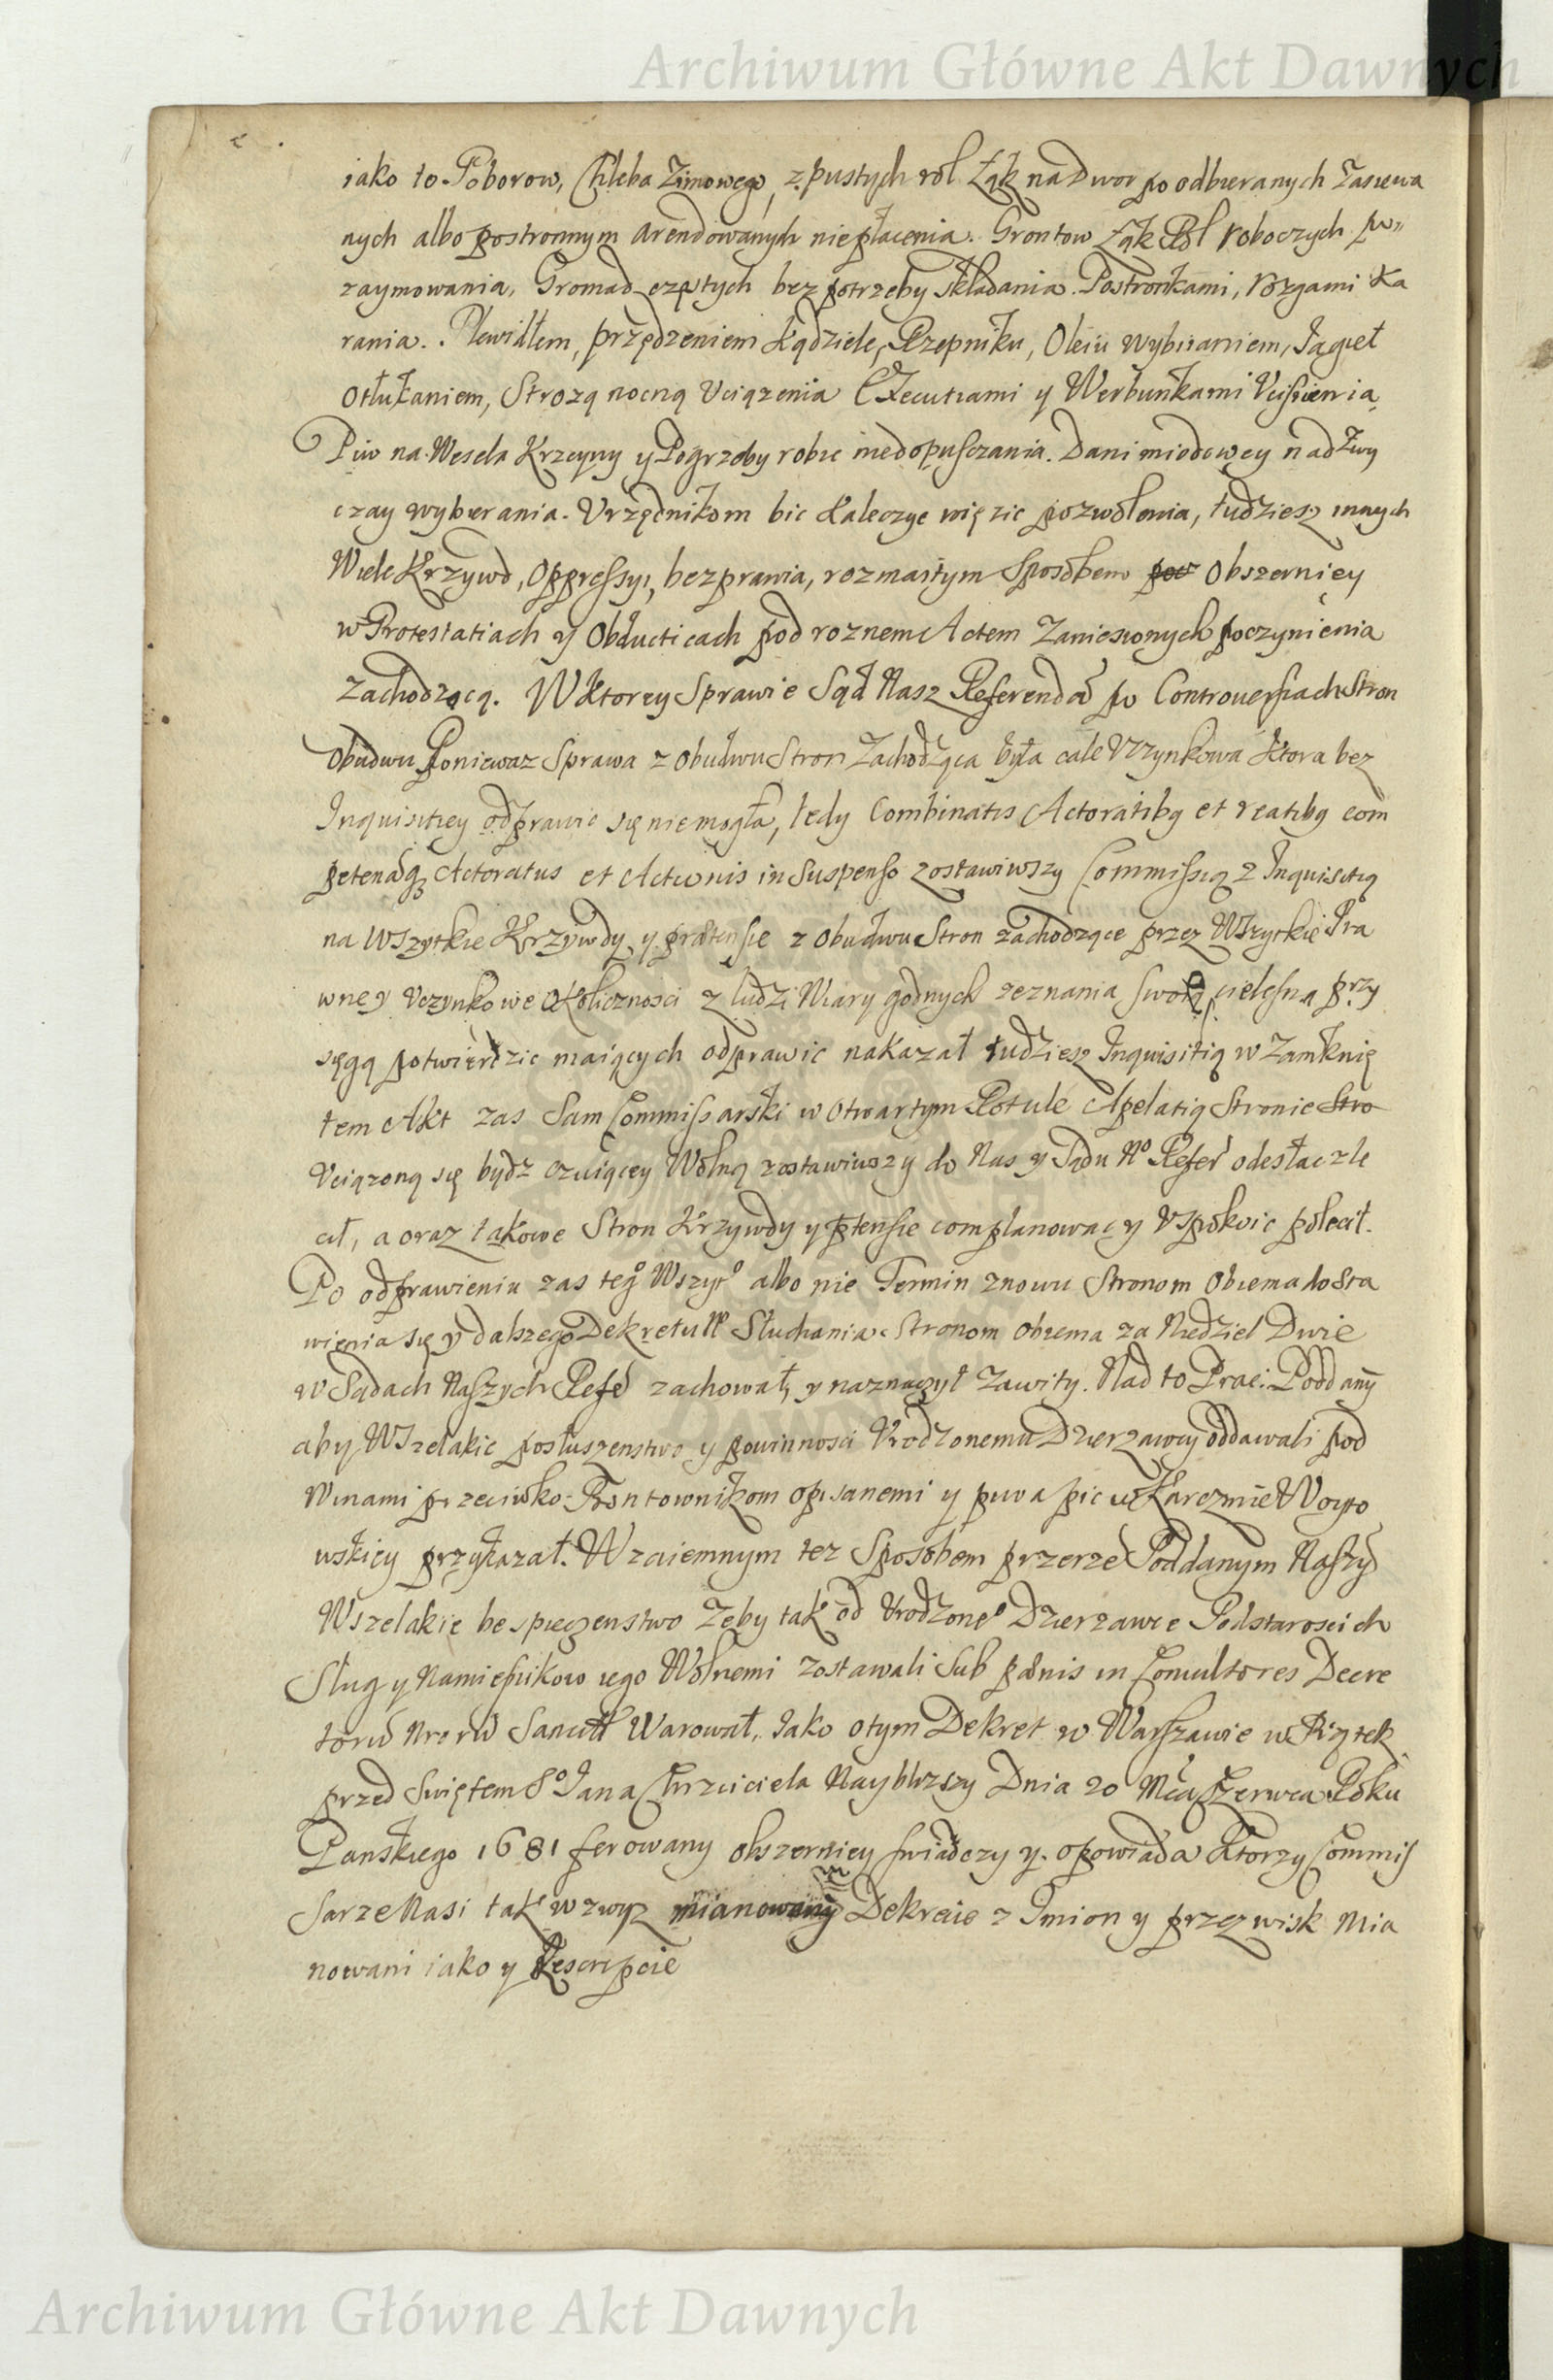 Archiwum Główne Akt Dawnych
iako to Poborow, Chleba Zimowego, z pustych rol Łąk na Dwor poodbieranych Zasiewa
nych albo postronnym arendowanych niepłacenia. Grontow Łąk Pol roboczych po„
zaymowania, Gromad częstych bez potrzeby składania. Postronkami, rozgami Ka
rania. Plewidłem, przędzeniem Kądziele, Rzepniku, Oleiu wybiianiem, Jagieł
otłukaniem, Strozą nocną Uciązenia Executiami y Werbunkami Uciśnienia
Piw na Wesela Krzciny y Pogrzeby robic niedopusczania. Dani miodowey nad Zwy
czay wybierania. Urzędnikom bic Kaleczyc więzic pozwolenia, tudziesz innych
Wiele Krzywd, Oppressyi, bezprawia, rozmaitym Sposobem Obszerniey
w Protestatiach y Obductiach pod roznem Actem Zaniesionych poczynienia
zachodzącą. W Ktorey Sprawie Sąd Nasz Referend po Controuersiach Stron
Obudwu Poniewaz Sprawa z Obudwu Stron Zachodząca była cale Uczynkowa Ktora bez
Inquisitiey odprawic się niemogła, tedy Combinatis Actoratibg et reatibg com
petenągz Actoratus et Actionis in Suspenso zostawiwszy Commissią z Inquisitią
na Wszytkie Krzywdy y prætensie z Obudwu Stron zachodzące przez Wszyckie Pra
wne y Uczynkowe Okolicznosci z ludzi Wiary godnych zeznania swoie cielesną przy
sięgą potwierdzic maiących odprawic nakazał tudziesz Inquisitią w Zamknię
tem Akt zas Sam Commissarski w Otwartym Rotule Apelatią Stronie Stro
Uciązoną się bydz czuiącey Wolną zostawiwszy do Nas y Sądu No Refer odesłac zle
cił, a oraz takowe Stron Krzywdy y ptensie complanowac y Uspokoic polecił.
Po odprawieniu zas tego Wszyto albo nie Termin znowu Stronom Obiema do Sta
wienia się y dalszego Dekretu Słuchania Stronom Obiema za Niedziel Dwie
w Sądach Naszych Refe zachował, y naznaczył Zawity. Nad to Prac: Poddany
aby Wszelakie posłuszenstwo y powinnosci Urodzonemu Dzierzawcy oddawali pod
Winami przeciwko Bontownikom opisanemi y piwa pic w Karczmie Woyto
wskiey przykazał. Wzaiemnym tez Sposobem przerze Poddanym Naszy
Wszelakie bespieczenstwo Zeby tak od Urodzoneo Dzierzawce Podstaroscich
Sług y Namiesnikow iego Wolnemi zostawali Sub pænis in Conuulsores Decre
toru Nroru Sancitt Warował. Jako o tym Dekret w Warszawie w Piątek
przed Swiętem So Jana Chrzciciela Nayblizszy Dnia 20 Mca Czerwca Roku
Panskiego 1681 ferowany obszerniey swiadczy y opowiada Ktorzy Commis
sarze Nasi tak w zwyz mianowany Dekrecie z Imion y przezwisk mia
nowani iako y Rescripcie
Archiwum Główne Akt Dawnych